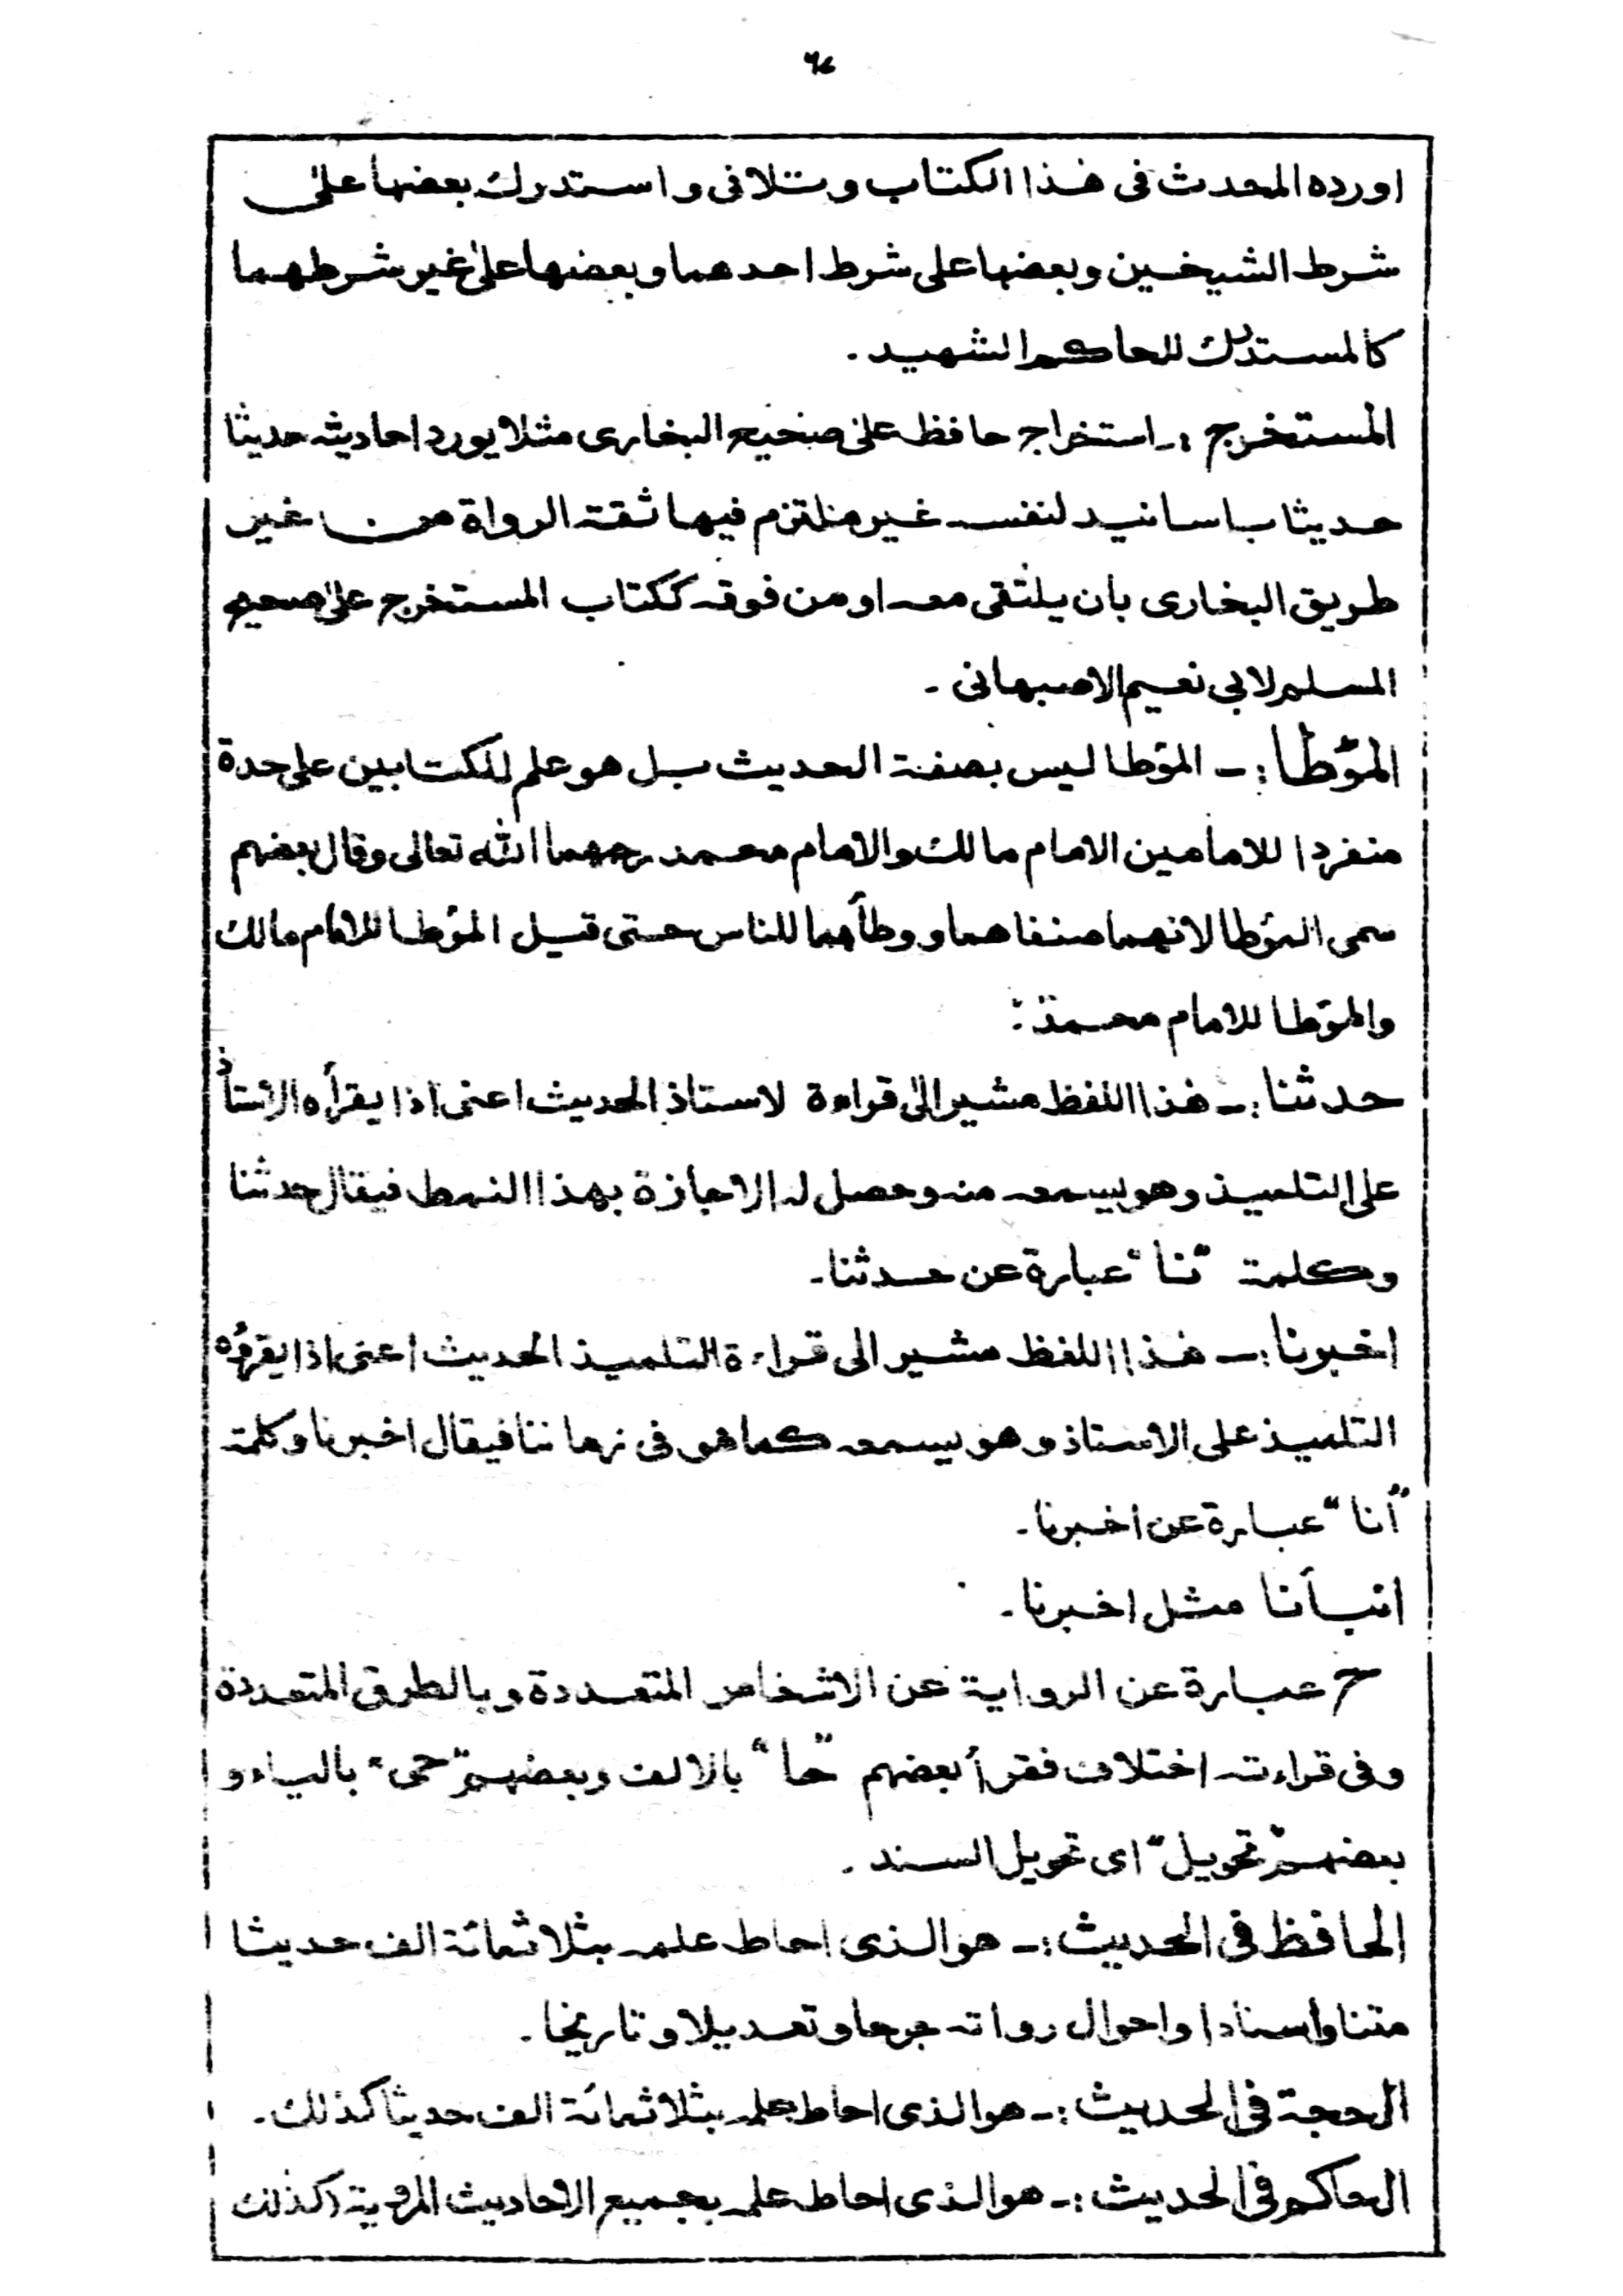 اورده المحدث فی هٰذا الکتاب وتلافی واستدرك بعضها علیٰ
شرط الشیخین وبعضها علی شرط احدهما وبعضها علیٰ غیر شرطهما
کالمستدرك للحاکم الشهید ۔
المستخرج :۔ استخراج حافظ علیٰ صحیح البخاری مثلا یورد احادیثه حدیثا
حدیثا باسانید لنفسه غیر ملتزم فیها ثقة الرواة من غیر
طریق البخاری بان یلتقی معه او من فوقه ککتاب المستخرج علیٰ صحیح
المسلم لابی نعیم الاصبهانی ۔
المؤطا :۔ المؤطا لیس بصفة الحدیث بل هو علم للکتابین علی حدة
منفردا للامامین الامام مالك والامام محمد رحمهما الله تعالی وقال بعضهم
سمی المؤطا لانهما صنفاهما ووطأهما للناس حتی قیل المؤطا للامام مالك
والمؤطا للامام محمدؒ :
حدثنا :۔ هٰذا اللفظ مشیر الیٰ قراءة لاستاذ الحدیث اعنی اذا یقرأه الاستاذ
علی التلمیذ وهو یسمعه منه وحصل له الاجازة بهذا النمط فیقال حدثنا
وکلمة "نا" عبارة عن حدثنا۔
اخبرنا :۔ هٰذا اللفظ مشیر الی قراءة التلمیذ الحدیث اعنی اذا یقرؤه
التلمیذ علی الاستاذ وهو یسمعه کما هو فی زماننا فیقال اخبرنا وکلمة
"أنا" عبارة عن اخبرنا۔
انبأنا مثل اخبرنا۔
ح عبارة عن الروایة عن الاشخاص المتعددة وبالطرق المتعددة
وفی قراءته اختلاف فقرأ بعضهم "حا" بالالف وبعضهم "حی" بالیاء و
بعضهم "تحویل" ای تحویل السند ۔
الحافظ فی الحدیث :۔ هو الذی احاط علمه بثلاثمائة الف حدیثا
متنا واسنادا واحوال رواته جرحا وتعدیلا وتاریخا ۔
الحجة فی الحدیث :۔ هو الذی احاط علمه بثلاثمائة الف حدیثا کذلك ۔
الحاکم فی الحدیث :۔ هو الذی احاط علمه بجمیع الاحادیث المرویة کذلك